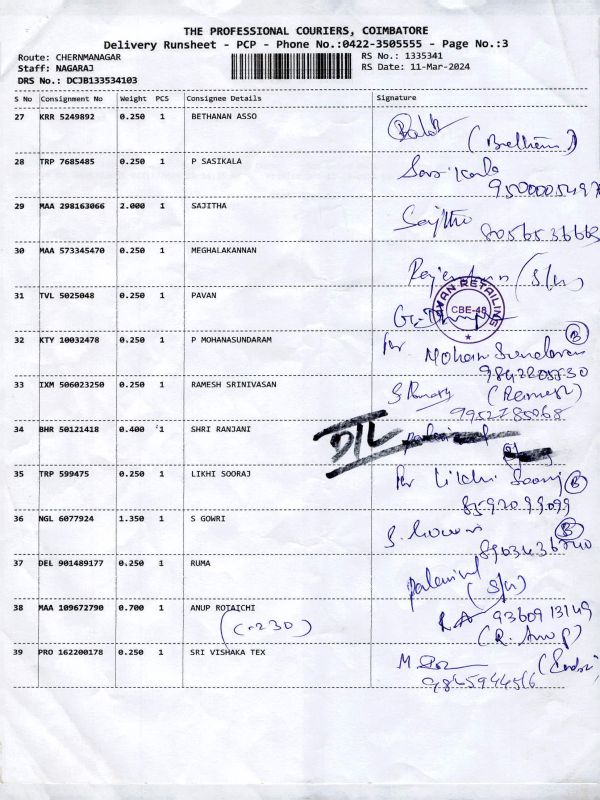 THE PROFESSIONAL COURIERS, COIMBATORE
Delivery Runsheet - PCP - Phone No.:0422-3505555 - Page No.:3
Route: CHERNMANAGAR RS No.: 1335341
Staff: NAGARAJ RS Date: 11-Mar-2024
DRS No.: DCJB133534103
S No Consignment No Weight PCS Consignee Details Signature
27 KRR 5249892 0.250 1 BETHANAN ASSO
28 TRP 7685485 0.250 1 P SASIKALA Sasikala
29 MAA 298163066 2.000 1 SAJITHA Sajitha
8056536663
30 MAA 573345470 0.250 1 MEGHALAKANNAN
31 TVL 5025048 0.250 1 PAVAN
RETAILING
CBE-48
32 KTY 10032478 0.250 1 P MOHANASUNDARAM for Mohan Sundaram B
9842205830
33 IXM 506023250 0.250 1 RAMESH SRINIVASAN (Ramesh)
9952785068
34 BHR 50121418 0.400 1 SHRI RANJANI DTL
35 TRP 599475 0.250 1 LIKHI SOORAJ for Likhi Sooraj B
8592099099
36 NGL 6077924 1.350 1 S GOWRI S. Gowri B
37 DEL 901489177 0.250 1 RUMA
38 MAA 109672790 0.700 1 ANUP ROTAICHI 9360913149
(C-230) (R. Anup)
39 PRO 162200178 0.250 1 SRI VISHAKA TEX